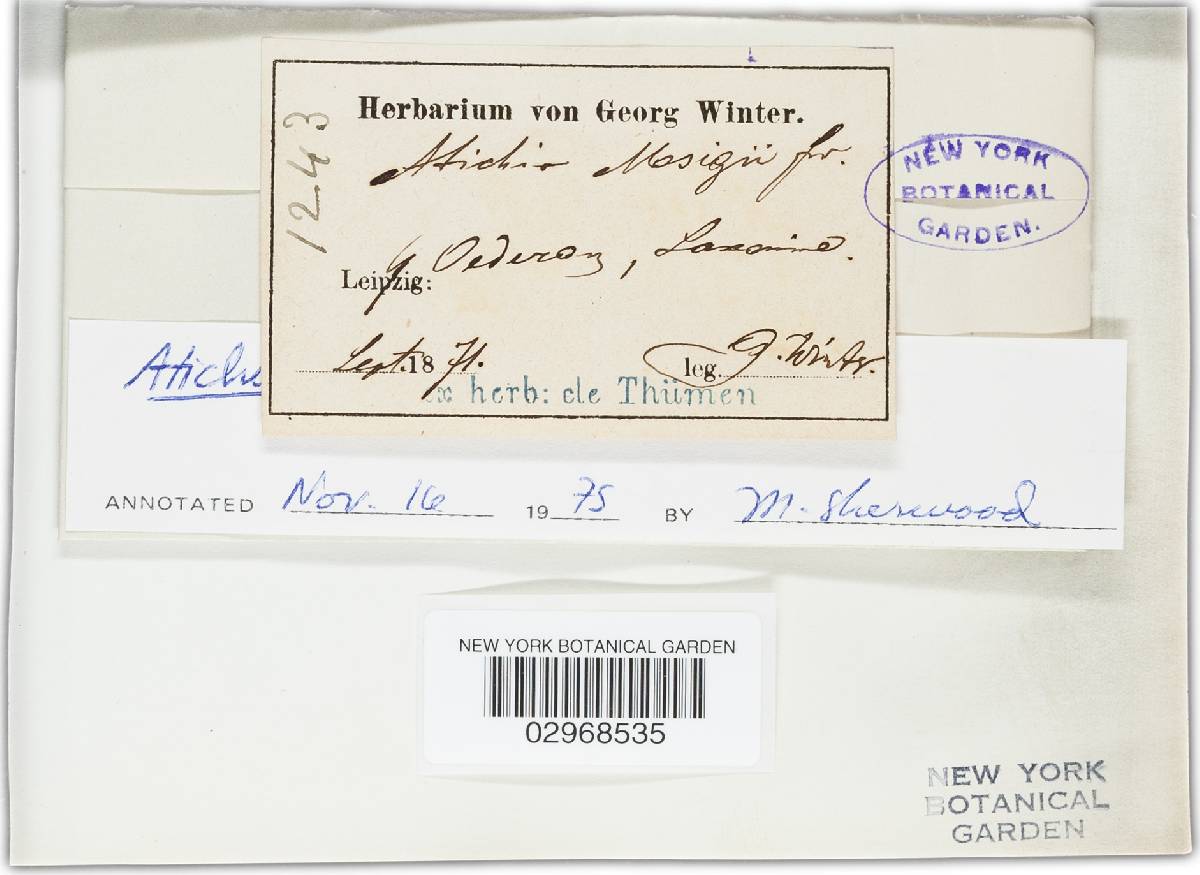 Herbarium von Georg Winter.
1243
Atichia Mosigii fr.
Oederan, Saxonia.
Leipzig:
Sept. 1871.
leg. G. Winter.
ex herb: de Thümen
NEW YORK
BOTANICAL
GARDEN.
Atichi
ANNOTATED Nov. 16 1975 BY M. Sherwood
NEW YORK BOTANICAL GARDEN
02968535
NEW YORK
BOTANICAL
GARDEN